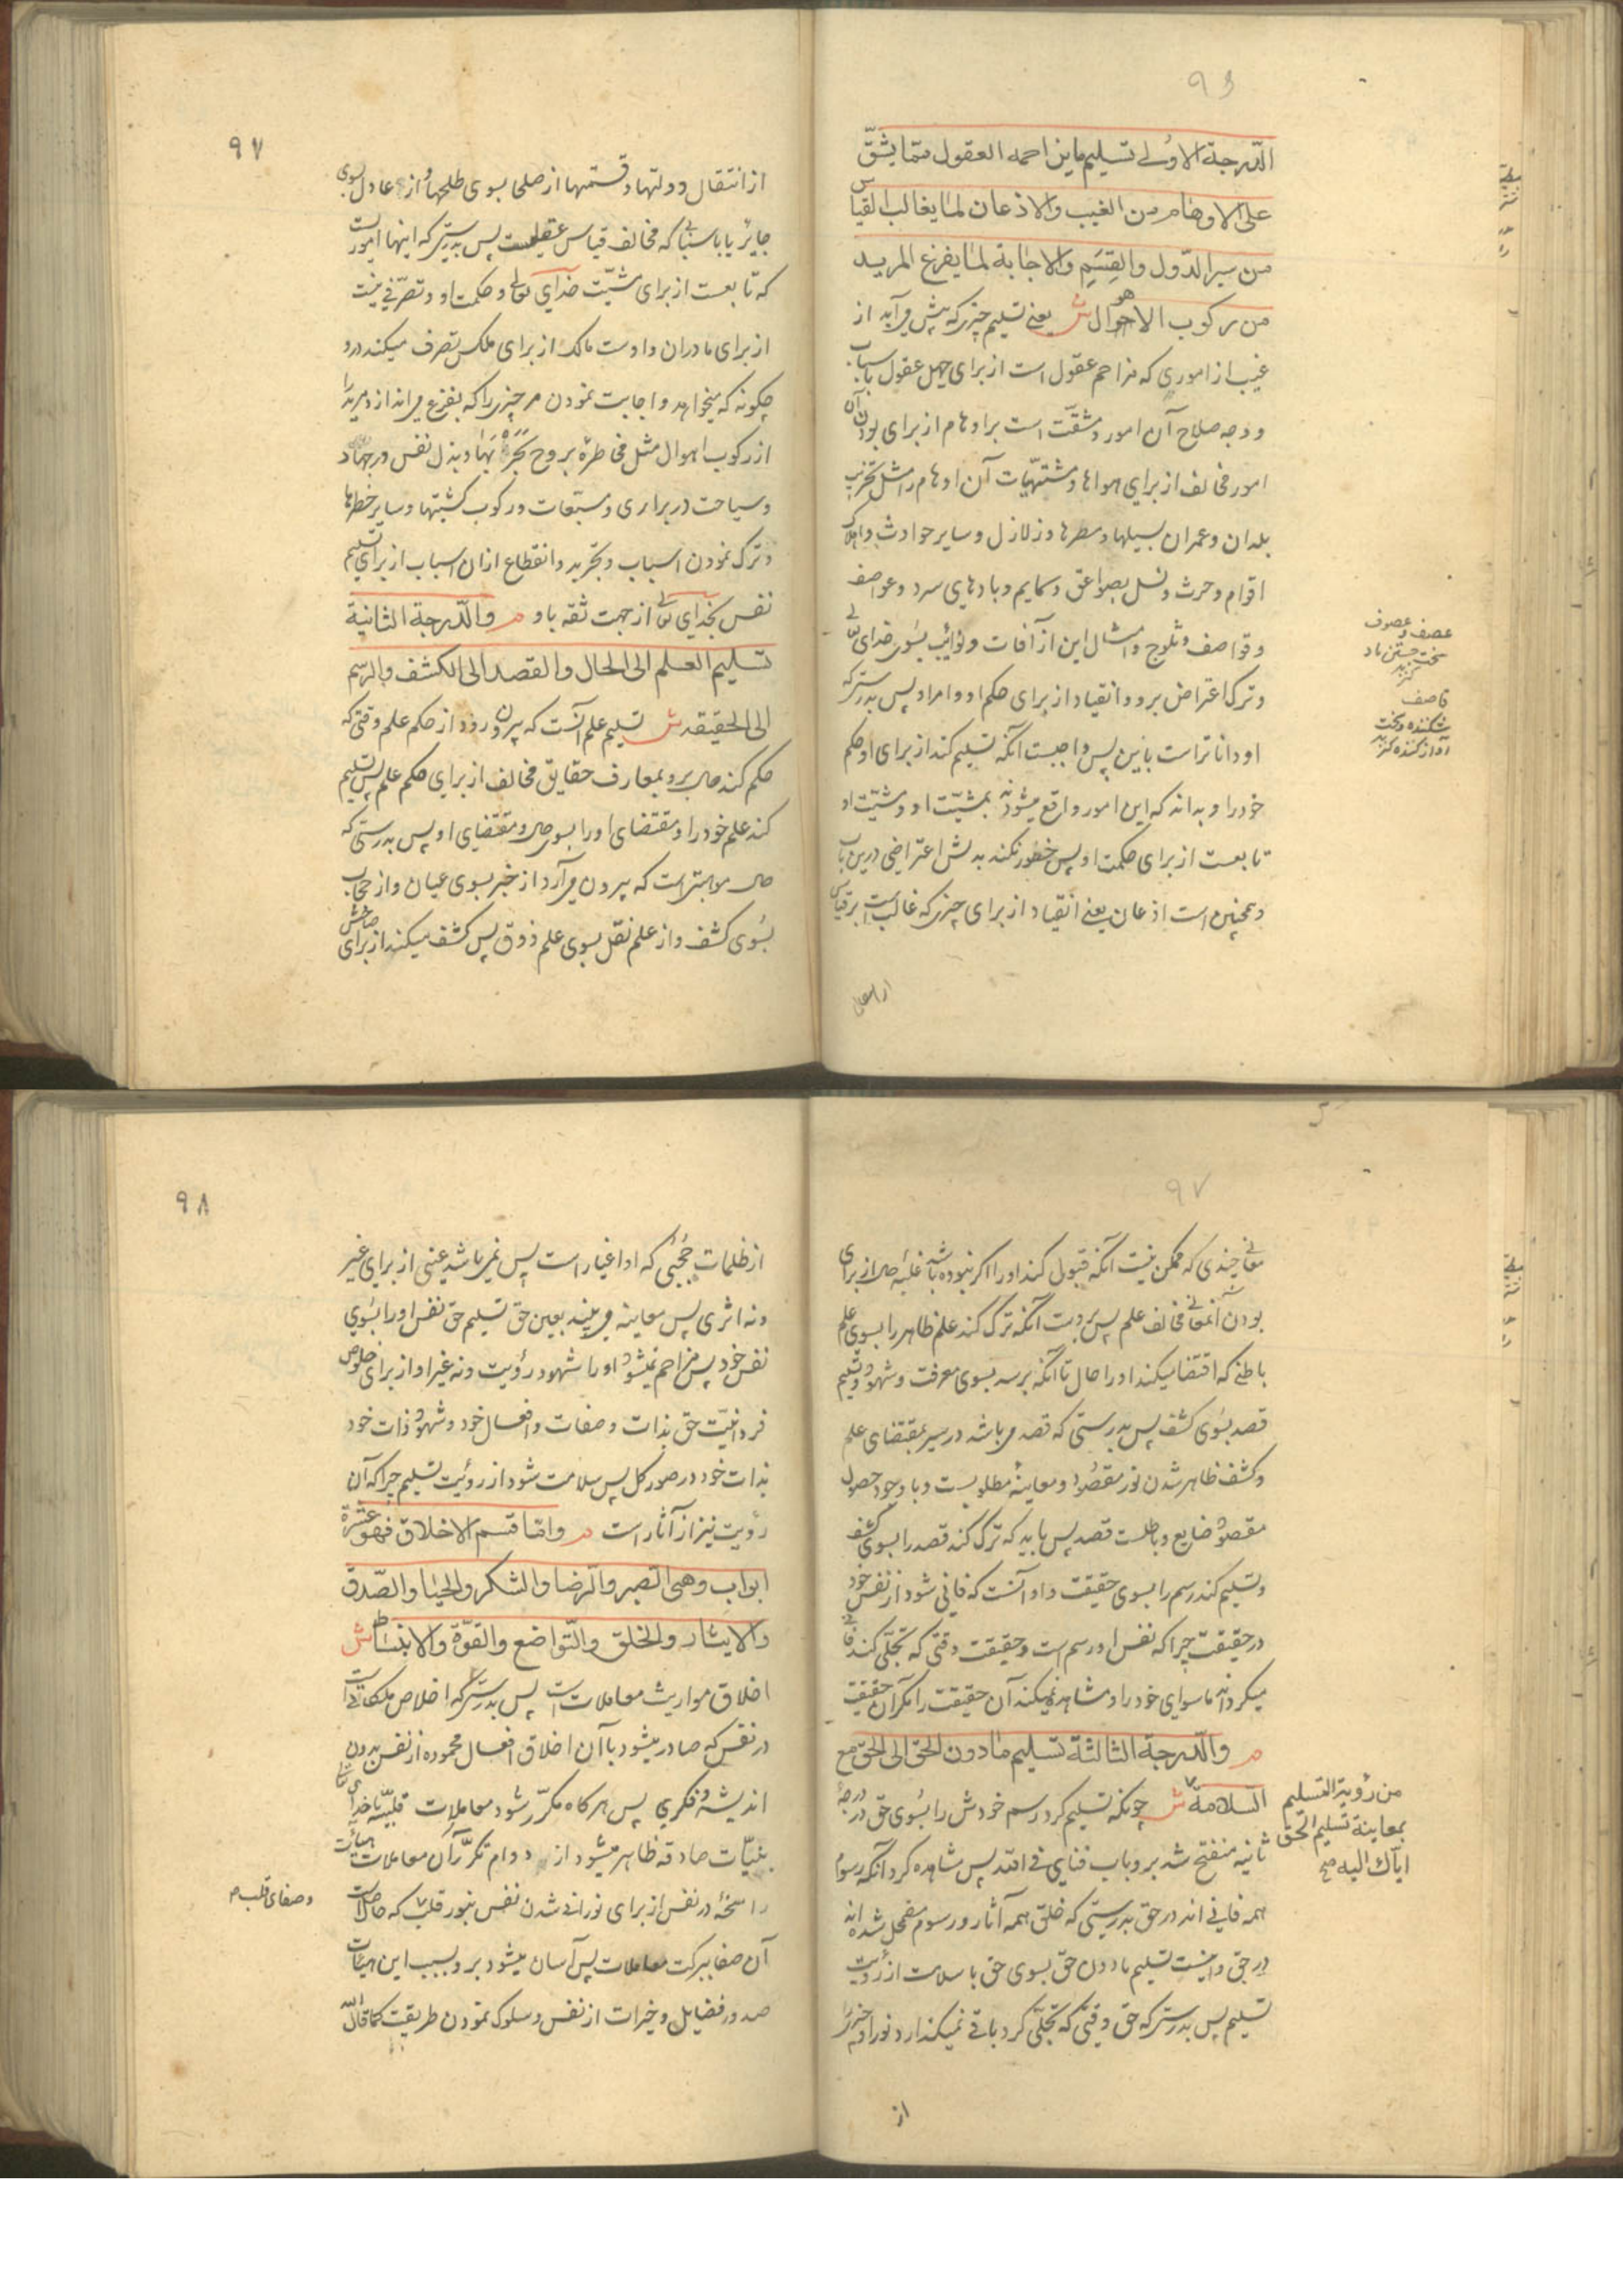 ٩٦
الدّرجة الاولی تسلیم ماینزاحمه العقول ممّا یشقّ
علی الاوهام من الغیب والاذعان لما یغالب القیاس
من سیر الدّول والقِسَمِ والاجابة لما یفزع المرید
من رکوب الاهوال ش یعنی تسلیم چیزی که پیش می آید از
غیب از اموری که مزاحم عقول است از برای جهل عقول باسباب
ووجه صلاح آن امور و مشقّت است بر اوهام از برای بودن آن
امور مخالف از برای هواها و مشتهیّات آن اوهام را مثل تخریب
بلدان و عمران بسیلها و مطرها و زلازل و سایر حوادث و اهلاک
اقوام و حرث و نسل بصواعق و سمایم و بادهای سرد و عواصف
و قواصف و ثلوج و امثال این از آفات و نوائب بسوی خدای تعالی
و ترک اعتراض برو و انقیاد از برای حکم او و امر او پس بدرستی که
او داناتر است باین پس واجبست آنکه تسلیم کند از برای او حکم
خود را و بداند که این امور واقع میشود بمشیّت او و مشیّت او
تابعست از برای حکمت او پس خطور نکند بدلش اعتراضی درین باب
و همچنین است اذعان یعنی انقیاد از برای چیزی که غالب است بر قیاس
از انتقال
عصف و عصوف
سخت جستن باد
کنز
قاصف
شکننده و سخت
آواز کننده کنز
٩٧
از انتقال و دولتها و قسمتها از صلحا بسوی طلحها و از عادل بسوی
جایر یا باسبابی که مخالف قیاس عقلیست پس بدرستی که اینها امور است
که تابعست از برای مشیّت خدای تعالی و حکمت او و تصرّفی نیست
از برای ما در ان و اوست مالک از برای ملکش تصرف میکند درو
چکونه که میخواهد و اجابت نمودن مر چیزی را که بفزع می اندازد مرید را
از رکوب اهوال مثل مخاطره بروح و بذل نفس در جهاد
و سیاحت در براری و رکوب کشتیها و سایر خطرها
و ترک نمودن اسباب و تجرید و انقطاع ازان اسباب از برای تسلیم
نفس بخدای تعالی از جهت ثقه باو م والدّرجة الثانیة
تسلیم العلم الی الحال والقصد الی الکشف والرسم
الی الحقیقة ش تسلیم علم آنست که بیرون رود از حکم علم وقتی که
حکم کند حال برو بمعارف حقایق مخالف از برای حکم علم پس تسلیم
کند علم خود را و مقتضای او را بسوی حال و مقتضای او پس بدرستی که
حال موهبتی است که بیرون می آرد از خبر بسوی عیان و از حجاب
بسُوی کشف و از علم نقل بسوی علم ذوق پس کشف میکند از برای صاحبش
٩٧
معانی چندی که ممکن نیست آنکه قبول کند او را اکر نبوده باشد غلبه حال از برای
بودن آنمعانی مخالف علم پس بروست آنکه ترک کند علم ظاهر را بسوی علم
باطنی که اقتضا میکند او را حال تا آنکه برسد بسوی معرفت و شهود و تسلیم
قصد بسُوی کشف پس بدرستی که قصد می باشد در سیر بمقتضای علم
و کشف ظاهر شدن نور مقصود و معاینهٔ مطلوبست و با وجود حصول
مقصود ضایع و باطلست قصد پس باید که ترک کند قصد را بسوی کشف
و تسلیم کند رسم را بسوی حقیقت و او آنست که فانی شود از نفس خود
در حقیقت چراکه نفس او رسم است و حقیقت وقتی که تجلّی کند فانی
میکرداند ماسوای خود را و مشاهده نمیکند آن حقیقت را مکر آن حقیقت
م والدّرجة الثالثة تسلیم مادون الحق الی الحق مع
السلامة ش چونکه تسلیم کرد رسم خودش را بسُوی حق در درجهٔ
ثانیه منفتح شد برو باب فنای فی الله پس مشاهده کرد آنکه رسوم
همه فانی اند در حق بدرستی که خلق همه آثار و رسوم مضمحل شده اند
در حق و اینست تسلیم مادون حق بسوی حق با سلامت از رؤیت
تسلیم پس بدرستی که حق وقتی که تجلّی کرد باقی نمیکذارد نور او چیزی را
از
من رؤیة التسلیم
بمعاینة تسلیم الحق
ایاک الیه صح
٩٨
از ظلمات حُجُبی که او اغیار است پس نمی باشد عینی از برای غیر
و نه اثری پس معاینه می بیند بعین حق تسلیم حق نفس او را بسُوی
نفس خود پس مزاحم نمیشود او را شهود رؤیت و نه غیر او از برای خلوص
فردانیّت حق بذات و صفات و افعال خود و شهود ذات خود
بذات خود در صور کل پس سلامت شود از رؤیت تسلیم چراکه آن
رؤیت نیز از آثار است م وامّا قسم الاخلاق فهو عشرة
ابواب وهی الصبر والرضا والشکر والحیا والصّدق
والایثار والخلق والتّواضع والفتوّة والانبساط ش
اخلاق مواریث معاملات است پس بدرستی که اخلاص ملکاتی است
در نفس که صادر میشود با آن اخلاق افعال محموده از نفس بدون
اندیشهٔ و فکری پس هر کاه مکرّر شود معاملات قلبیّه با خدای تعالی
بنیّات صادقه ظاهر میشود از دوام تکرّر آن معاملات هیأت
راسخه در نفس از برای نورانی شدن نفس بنور قلب که حاصل است
آن صفا ببرکت معاملات پس آسان میشود برو بسبب این هیئات
صدور فضایل و خیرات از نفس و سلوک نمودن طریقت کما قال الله
و صفای قلب ص